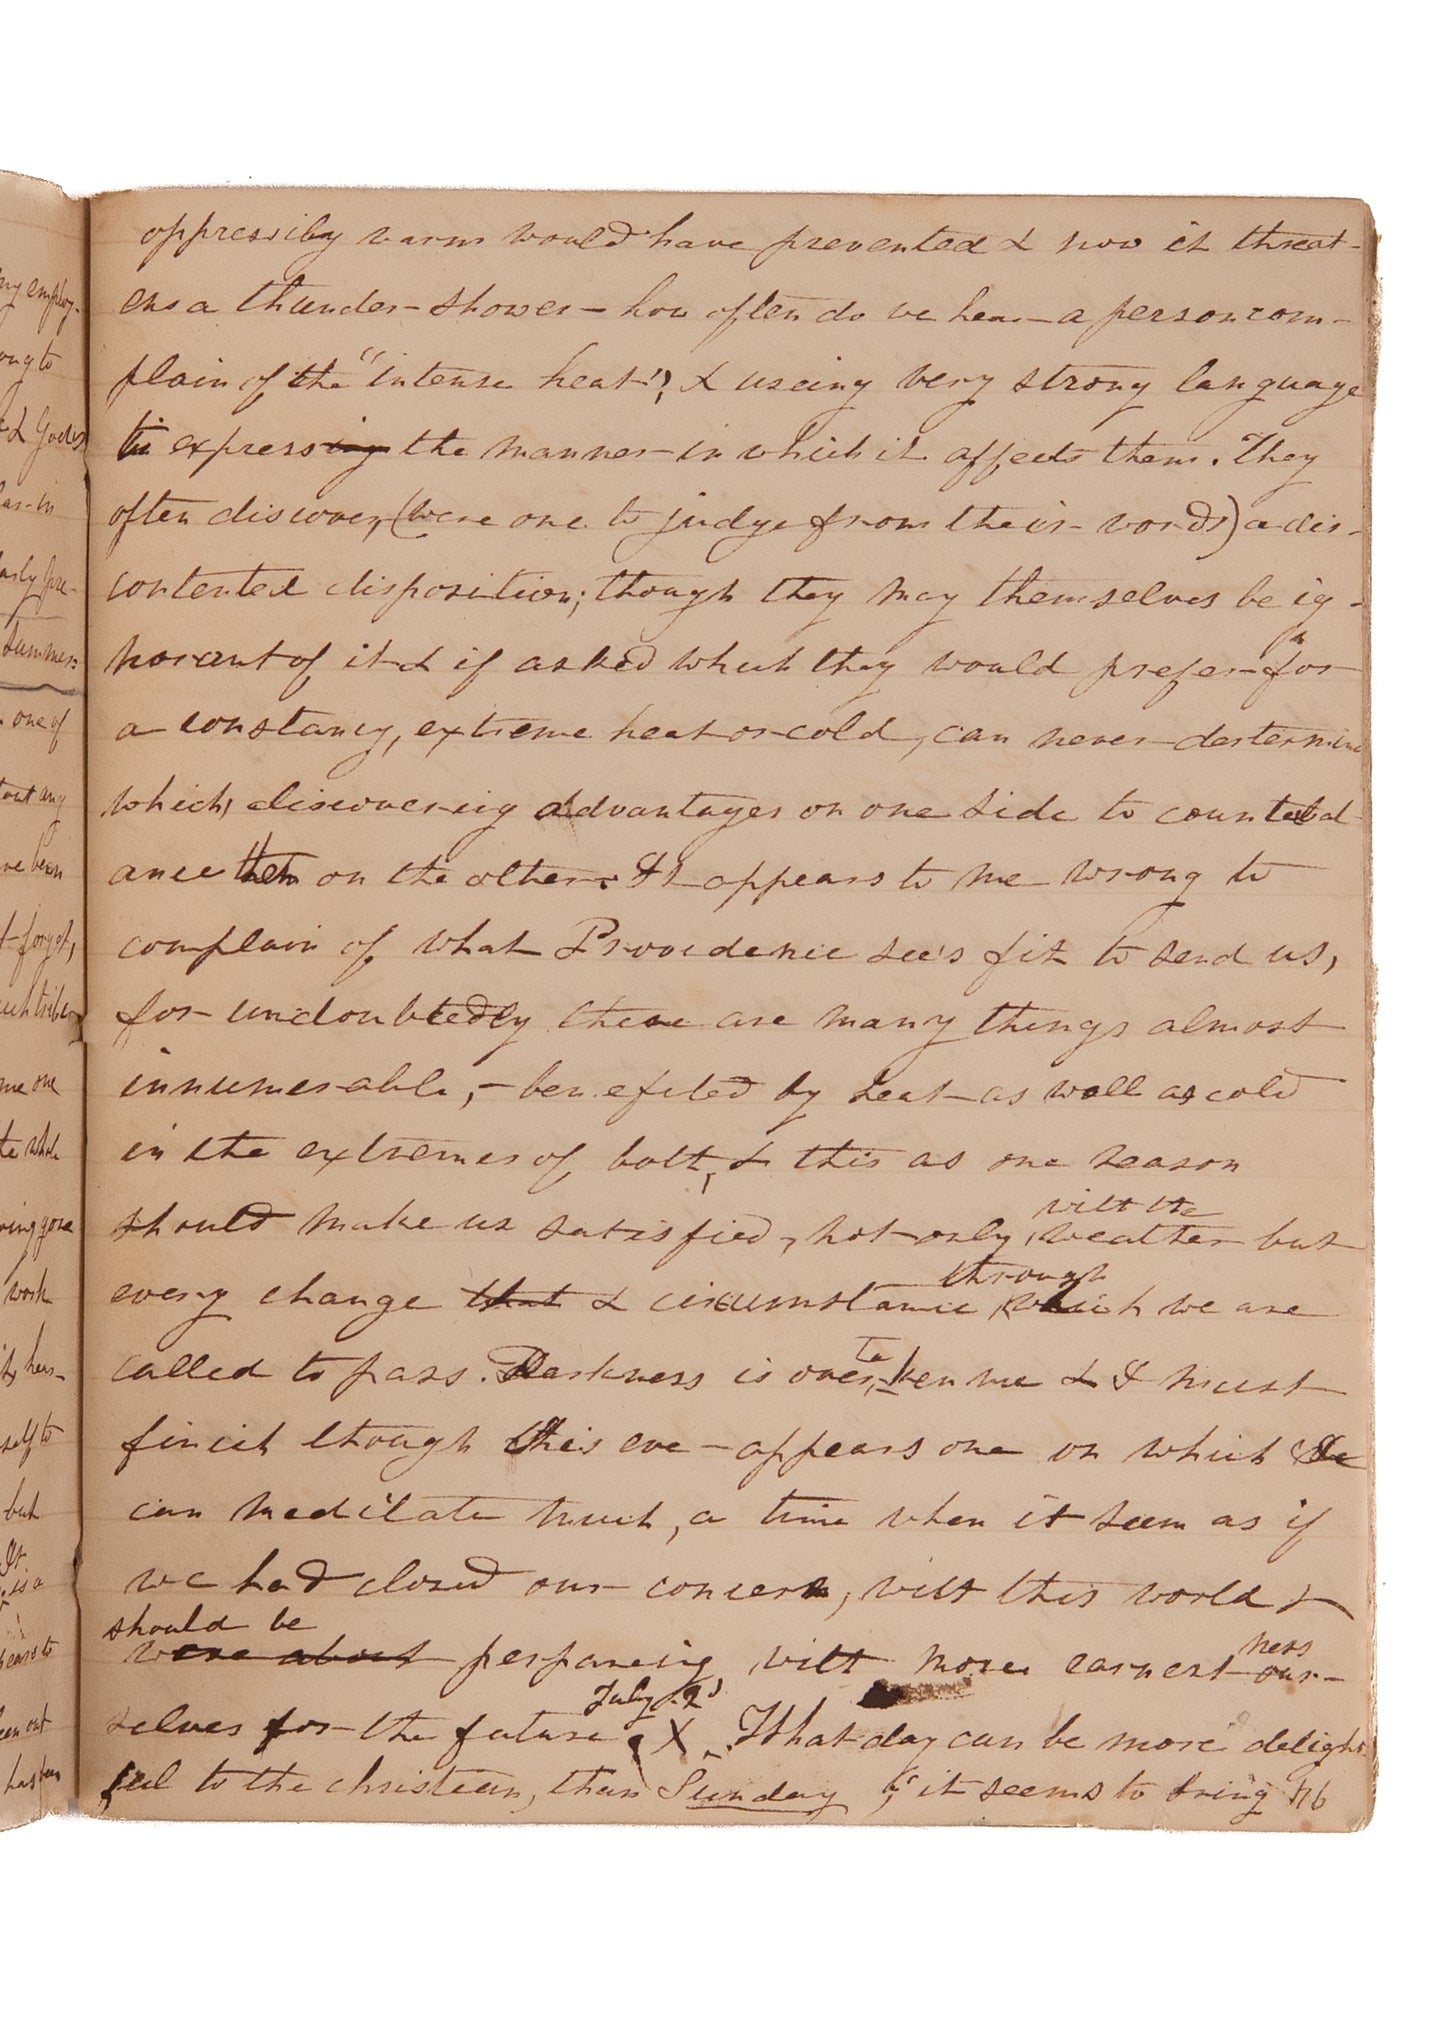 oppressiby warm would have prevented & now it threat-
ens a thunder-shower – how often do we hear a person com-
plain of the "intense heat", & useing very strong language
to expressing the manner in which it affects them. They
often discover, (were one to judge from their words) a dis-
contented disposition; though they may themselves be ig-
norant of it & if asked which they would prefer for
a constancy, extreme heat or cold, can never determine
which, discovering advantages on one side to counterbal-
ance then on the other. It appears to me wrong to
complain of what Providence see's fit to send us,
for undoubtedly there are many things almost
innumerable, – benefited by heat as well as cold
in the extremes of both, & this as one reason
with the
should make us satisfied, not only, weather but
through
every change that & circumstance, which we are
called to pass. Darkness is over,ken me & I must
ta
finish though this eve – appears one on which we
can meditate much, a time when it seem as if
we had closed our concern, with this world &
should be
were about perpareing, with more earnest our-
ness
July 2d
selves for the future. X . What day can be more delight
,ful to the christeen, than Sunday, it seems to bring
my employ-
ong to
& Gods
lar in
arly pre-
summer
one of
out any
ve been
forget,
me one
te whole
ring gone
work
its her-
self to
but
It
is a
been out
has been